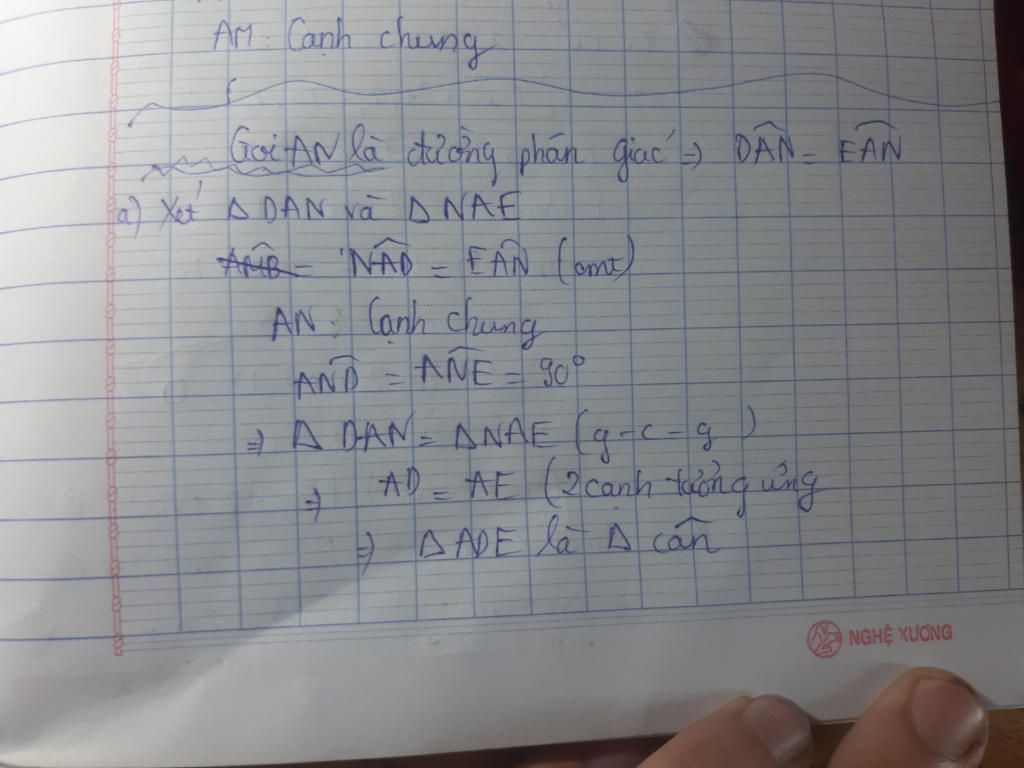 AM : Cạnh chung
Gọi AN là đường phân giác => DÂN = EÂN
a) Xét Δ DAN và Δ NAE
AMB = NAD = EÂN (cmt)
AN : Cạnh chung
AND = ANE = 90°
=> Δ DAN = Δ NAE (g-c-g)
=> AD = AE (2 cạnh tương ứng
=> Δ ADE là Δ cân
NGHỆ XƯƠNG